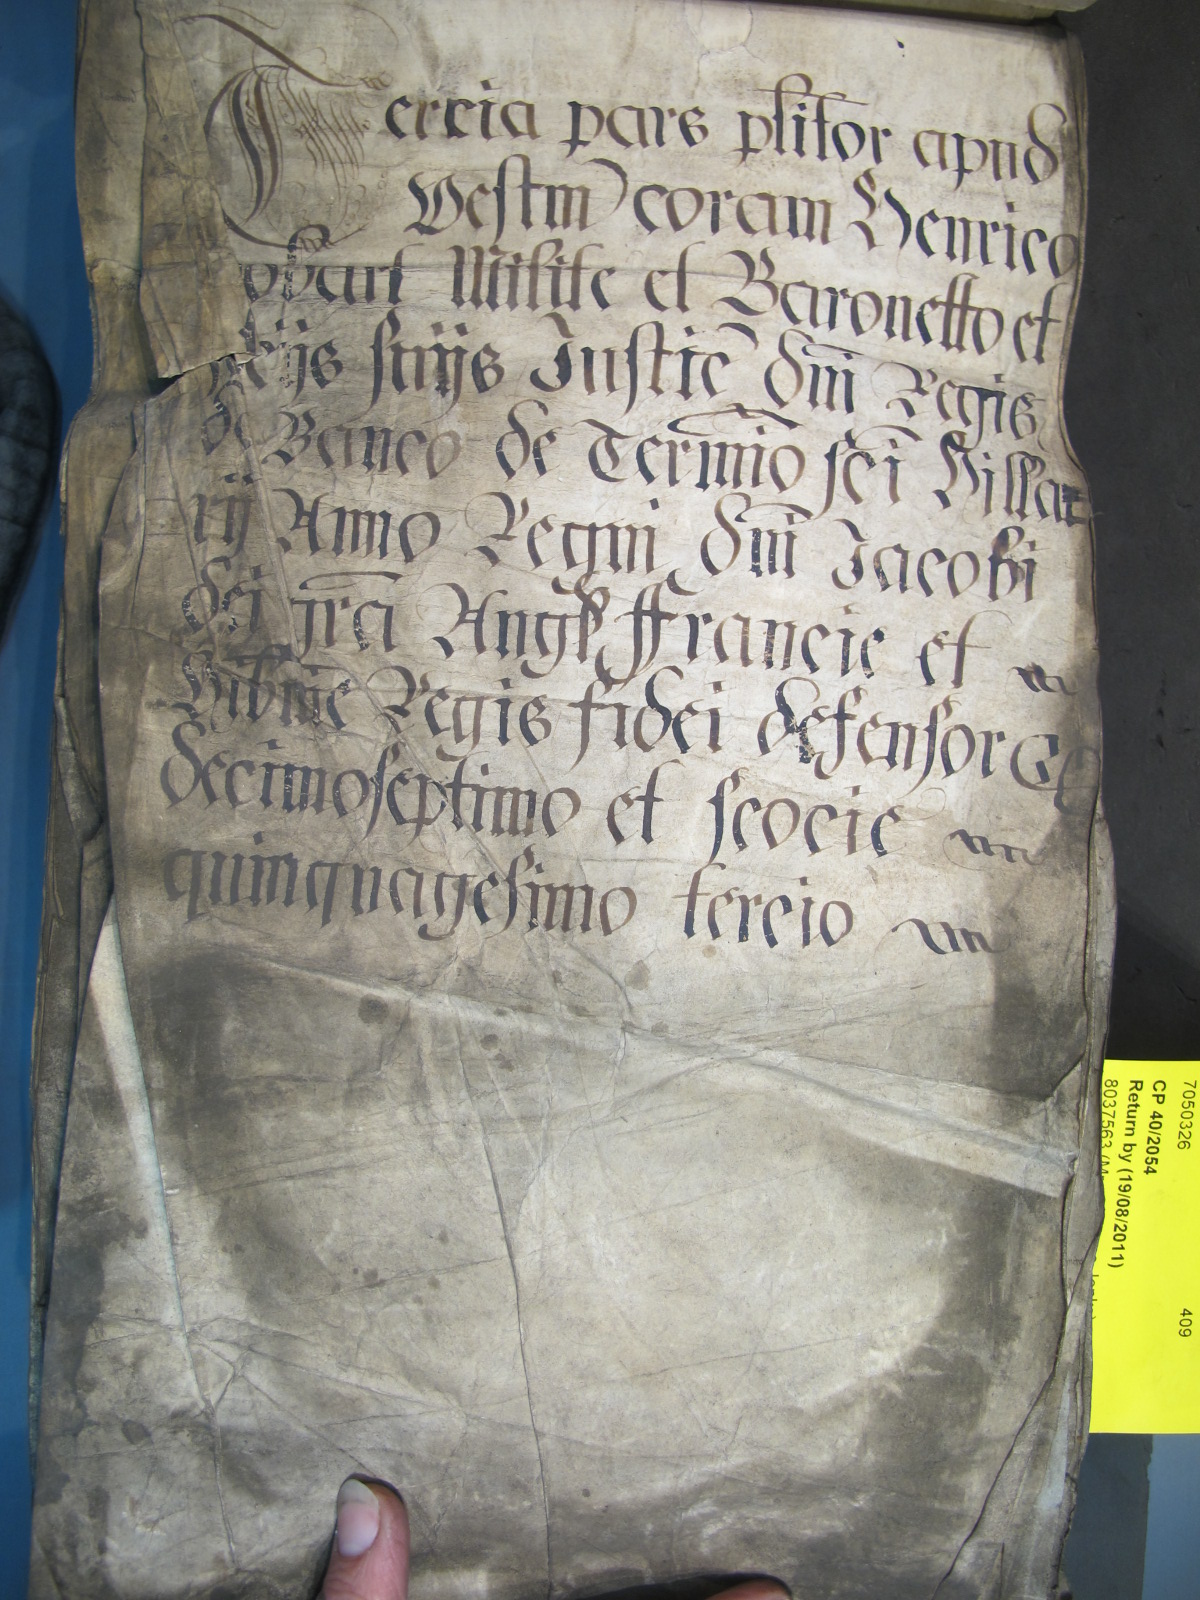 Tercia pars plitor apud
Westm coram Henrico
Hobart Milite et Baronetto et
socijs suijs Justic dni Regis
de Banco de Termino sci Hillar
rij Anno Regni dni Jacobi
dei gra Angl ffrancie et
Hibnie Regis fidei defensor &c
decimoseptimo et scocie
quinquagesimo tercio
7050326 409
CP 40/2054
Return by (19/08/2011)
8037563